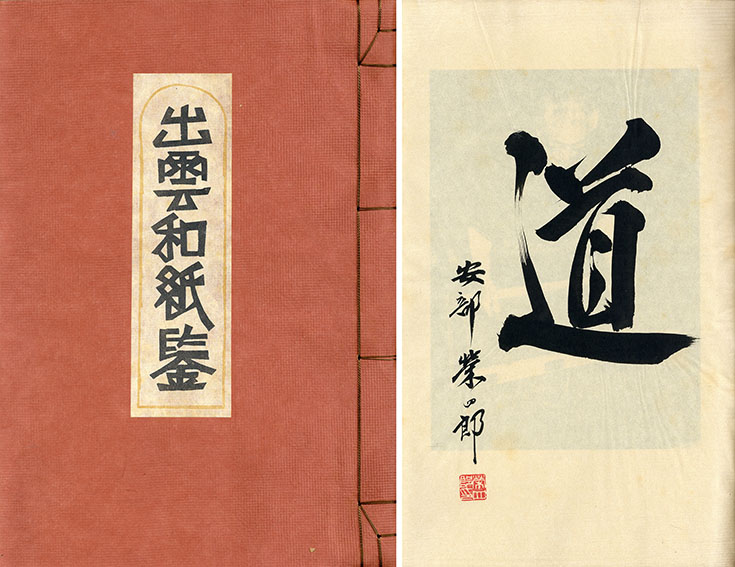 出雲和紙鑒
道
安部榮四郎